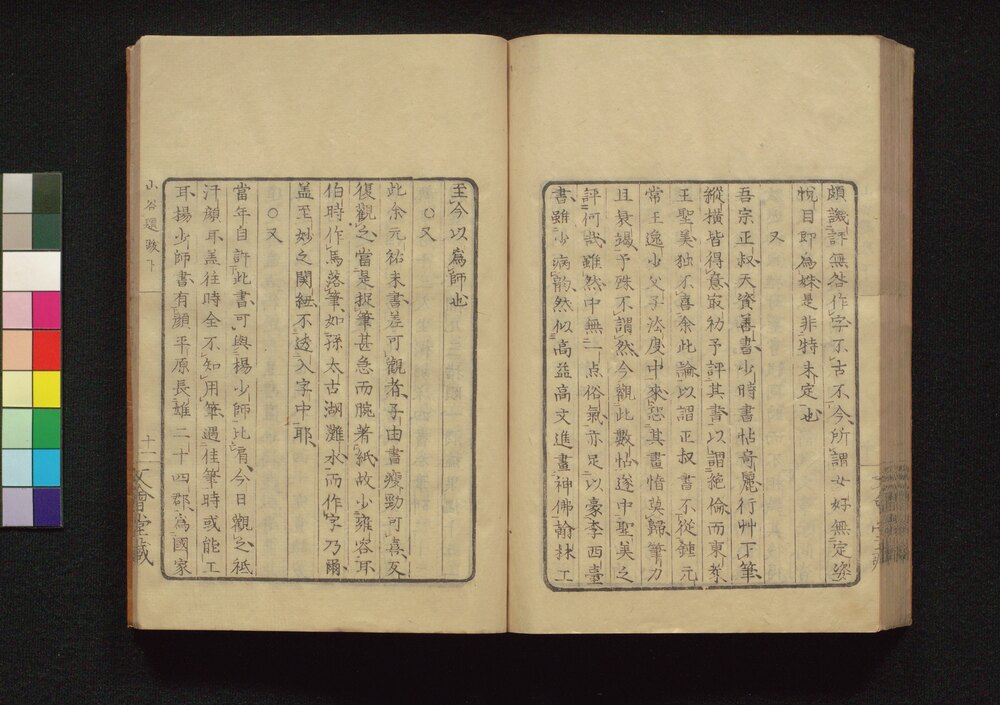 頗譏評無咎作字不古不今所謂女好無定姿
悅目即為姝是非特未定也
又
吾宗正叔天資善書少時書帖奇麗行艸下筆
縱橫皆得意最初予評其書以謂絕倫而東萊
王聖美獨不喜余此論以謂正叔書不從鍾元
常王逸少父子法度中來恐其晝惜莫歸筆力
且衰竭予殊不謂然今觀此數帖遂中聖美之
評何哉雖然中無一点俗氣亦足以豪李西臺
書雖少病韻然似高益高文進畫神佛翰林工
至今以為師也
○又
此余元祐末書差可觀者子由書瘦勁可喜反
復觀之當是捉筆甚急而腕著紙故少雍容耳
伯時作馬落筆如孫太古湖灘水而作字乃爾
盖至妙之関紐不透入字中耶
○又
當年自許此書可與楊少師比肩今日觀之秖
汗顏耳盖往時全不知用筆遇佳筆時或能工
耳楊少師書有顏平原長雄二十四郡為國家
山谷題跋下
十二
文會堂藏